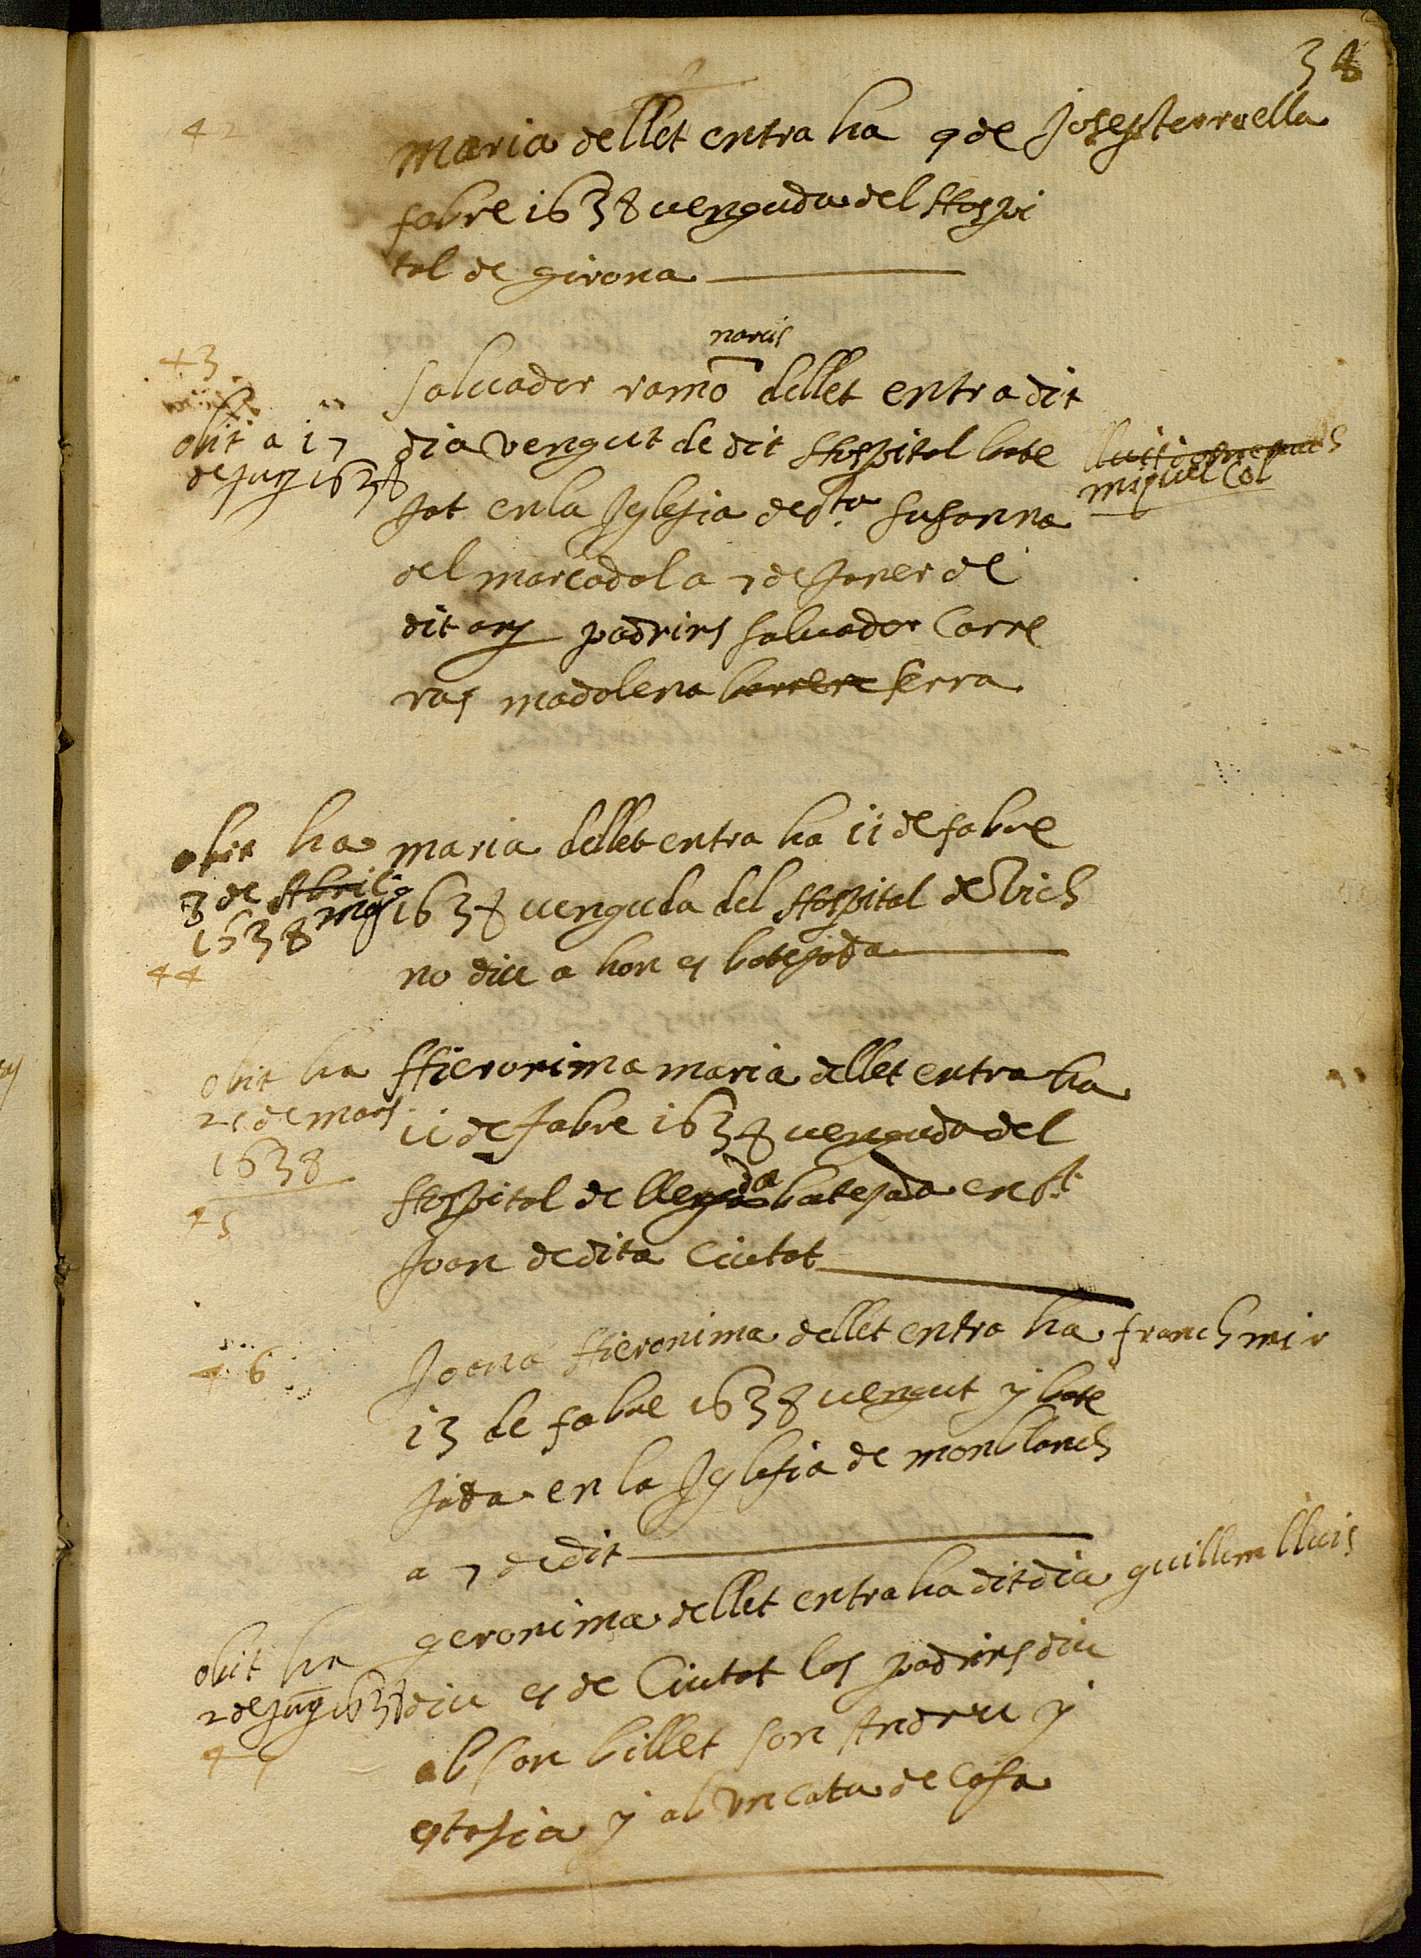 38
42
maria de llet entra ha 9 de Josep terruella
fabre 1638 venguda del Hospi
tal de girona
43
narcis
saluador ramo dellet entra dit
obit a 17
de juny 1638
dia vengut de dit Hospital bate
miquel Col
jat en la Iglesia de sta susanna
del marcadal a 7 de Janer de
dit any padrins saluador Carre
ras madalena barrera serra
obit ha
3 de Abril
maig
1638
44
maria dellet entra ha 11 de fabre
1638 uenguda del Hospital de Vich
no diu a hon es batejada
obit ha
21 de mars
1638
45
Hieronima maria dellet entra ha
11 de fabre 1638 uenguda del
Hospital de lleyda batejada en st
Joan de dita Ciutat
46
Joana Hieronima dellet entra ha franch mir
13 de fabre 1638 uengut y bate
jada en la Iglesia de monblanch
a 7 de dit
obit ha
2 de juny 1638
47
geronima dellet entra ha dit dia guillem lluis
diu es de Ciutat los padrins diu
ab son billet son Andreu y
stasia y ab un catu de casa